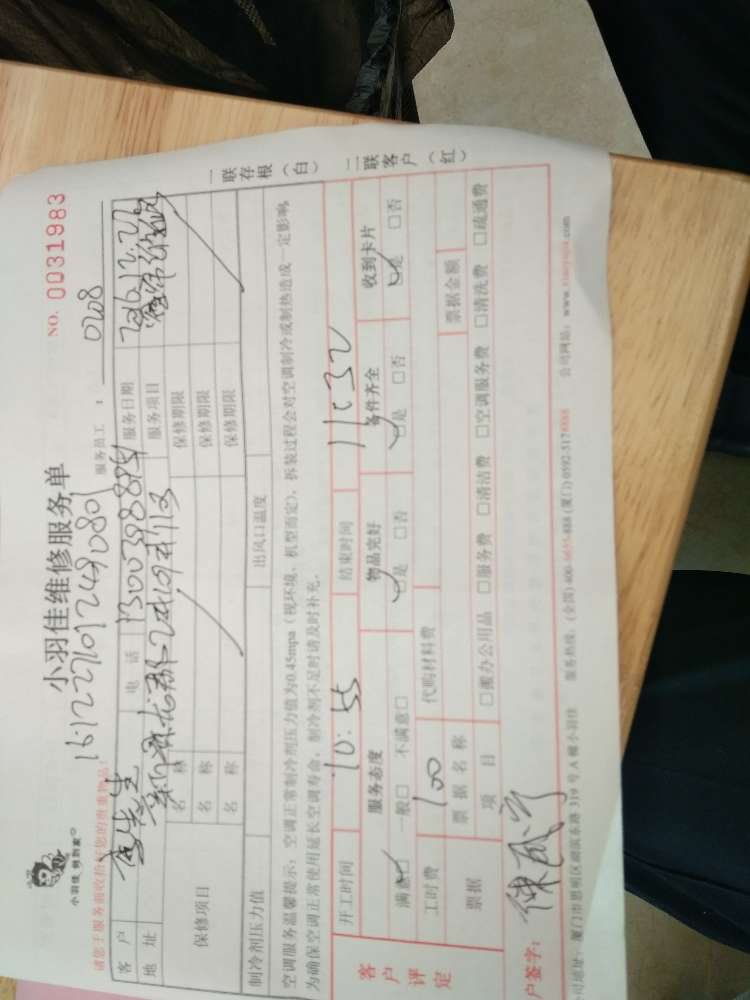 小羽佳 佣到家
小羽佳维修服务单
NO. 0031983
161227101249080
请您于服务前收拾好您的贵重物品!
服务员工: 0208
客户 先生 电话 13003988851 服务日期
地址 服务项目
保修项目 名称 保修期限
名称 保修期限
名称 保修期限
制冷剂压力值 出风口温度
空调服务温馨提示:空调正常制冷剂压力值为0.45mpa(视环境、机型而定),拆装过程会对空调制冷或制热造成一定影响,
为确保空调正常使用延长空调寿命,制冷剂不足时请及时补充。
一联存根(白) 二联客户(红)
开工时间 10:55 结束时间 11:32
客户评定
服务态度 物品完好 备件齐全 收到卡片
满意□ 一般□ 不满意□ □是 □否 □是 □否 □是 □否
工时费 100 代购材料费
票据 票据名称 票据金额
项目 □酸办公用品 □服务费 □清洁费 □空调服务费 □清洗费 □疏通费
户签字:
司地址:厦门市思明区湖滨东路 319 号 A 幢小羽佳 服务热线:(全国)400-6655-888 (厦门) 0592-5178888 公司网站:www.xiaoyujia.com